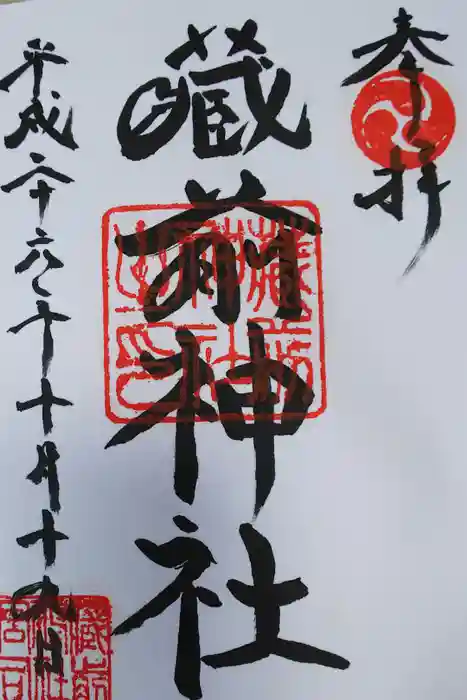 奉拝
藏前神社
藏前
神社
之印
平成二十六年十月十九日
藏前
神社
宮司